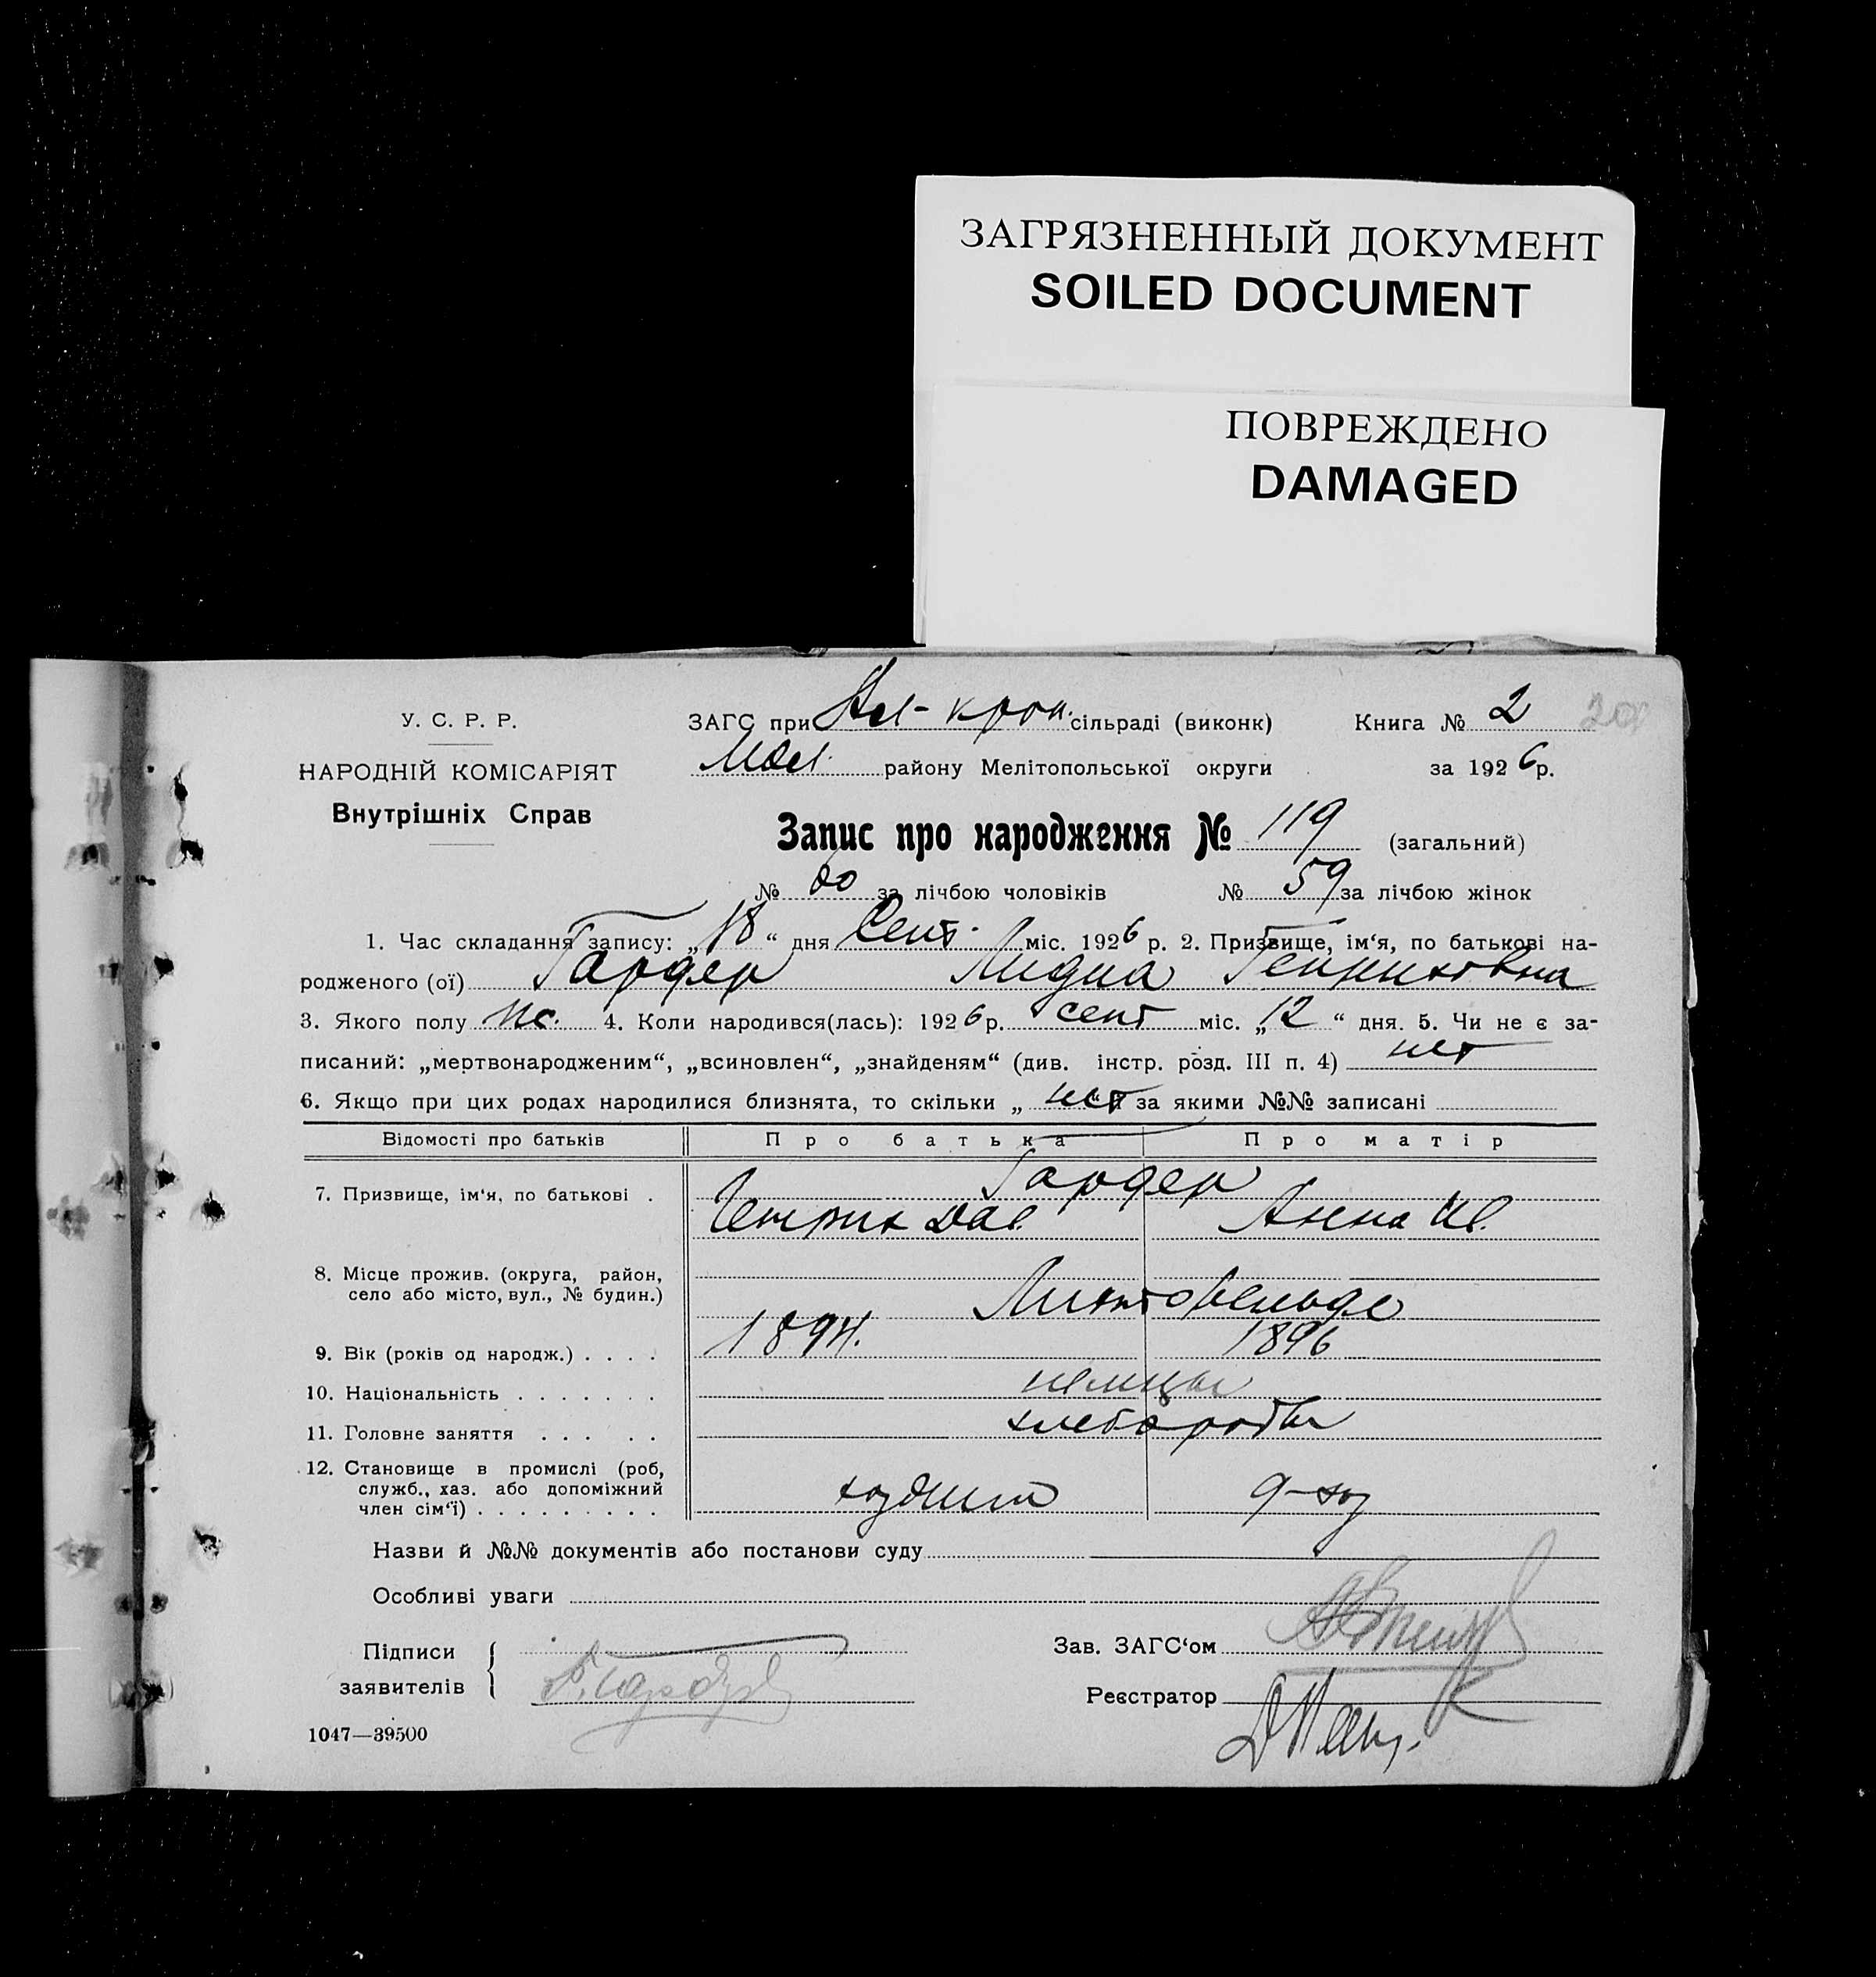 ЗАГРЯЗНЕННЫЙ ДОКУМЕНТ
SOILED DOCUMENT
ПОВРЕЖДЕНО
DAMAGED
У. С. Р. Р.
НАРОДНІЙ КОМІСАРІЯТ
Внутрішніх Справ
ЗАГС при сільраді (виконк) Книга № 2
Мол. району Мелітопольської округи за 1926 р.
Запис про народження № 119 (загальний)
№ 60 за лічбою чоловіків № 59 за лічбою жінок
1. Час складання запису: „18“ дня Сент. міс. 1926 р. 2. Призвище, ім‘я, по батькові на-
родженого (ої) Гардер Лидиа Генриховна
3. Якого полу ж. 4. Коли народився(лась): 1926 р. сент міс. „12“ дня. 5. Чи не є за-
писаний: „мертвонародженим“, „всиновлен“, „знайденям“ (див. інстр. розд. III п. 4) нет
6. Якщо при цих родах народилися близнята, то скільки „нет“ й за якими №№ записані
Відомості про батьків Про батька Про матір
7. Призвище, ім‘я, по батькові . Гардер
Генрих Дав. Анна Ив.
8. Місце прожив. (округа, район,
село або місто, вул., № будин.) Лихтовельде
9. Вік (років од народж.) . . . . 1894. 1896
10. Національність . . . . . . . немцы
11. Головне заняття . . . . . хлеборобы
12. Становище в промислі (роб,
служб., хаз. або допоміжний
член сім‘ї) . . . . . . . . . хозяин
Назви й №№ документів або постанови суду
Особливі уваги
Підписи
заявителів
Зав. ЗАГС‘ом
Реєстратор
1047—39500